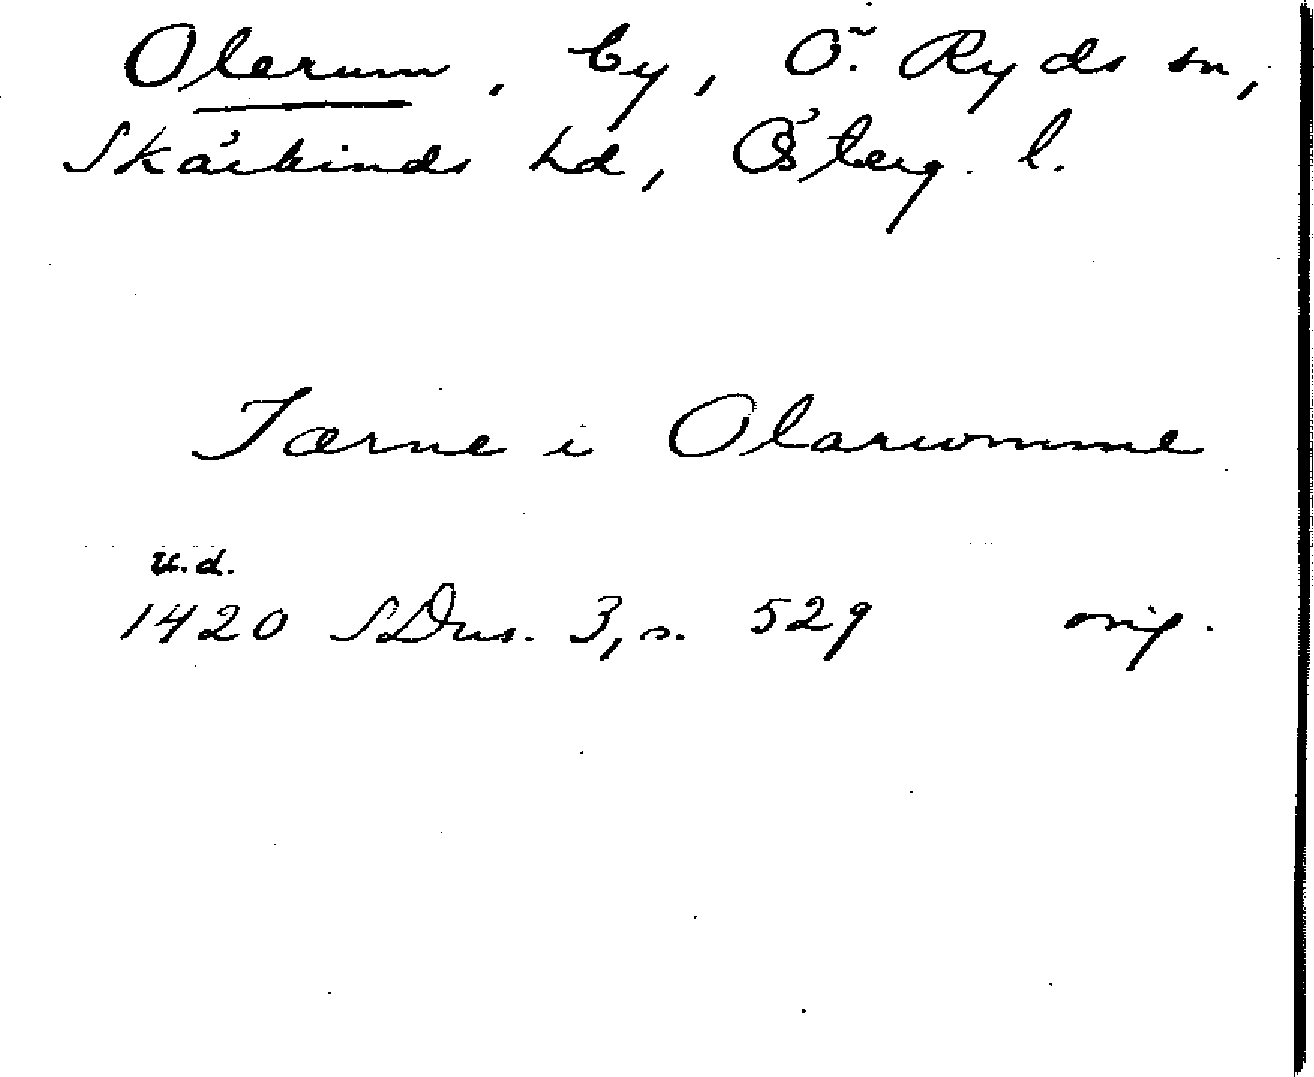 Olerum, by, Ö. Ryds sn,
Skärkinds hd, Österg. l.
Tærne i Olarwmme
u.d.
1420 SDns. 3, s. 529 orig.